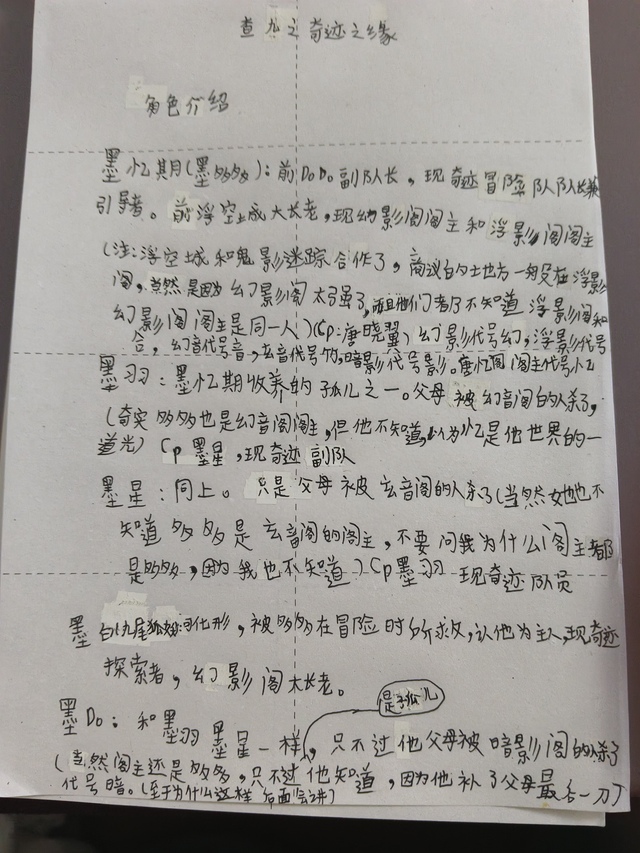 查九之奇迹之缘
角色介绍
墨忆期(墨多多):前DoDo副队长,现奇迹冒险队队长兼
引导者。前浮空城大长老,现幻影阁阁主和浮影阁阁主
(注:浮空城和鬼影迷踪合作了,商议的地方一般在浮影
阁,当然是因为幻影阁太强了,而且他们都不知道浮影阁和
幻影阁阁主是同一人)(Cp:唐晓翼)幻影代号幻,浮影代号
,幻音代号音,玄音代号,暗影代号影。唐忆阁阁主代号忆
墨羽:墨忆期收养的孤儿之一。父母被幻音阁的人杀了,
(奇实多多也是幻音阁阁主,但他不知道,以为忆是他世界的一
道光)Cp墨星,现奇迹副队
墨星:同上。只是父母被玄音阁的人杀了(当然她也不
知道多多是玄音阁的阁主,不要问我为什么阁主都
是多多,因为我也不知道)Cp墨羽 现奇迹队员
墨白(九尾狐化形,被多多在冒险时所救,认他为主人,现奇迹
探索者,幻影阁大长老。
是孤儿
墨Do:和墨羽墨星一样,只不过他父母被暗影阁的人杀了
(当然阁主还是多多,只不过他知道,因为他补了父母最后一刀
代号暗。(至于为什么这样 后面会讲)